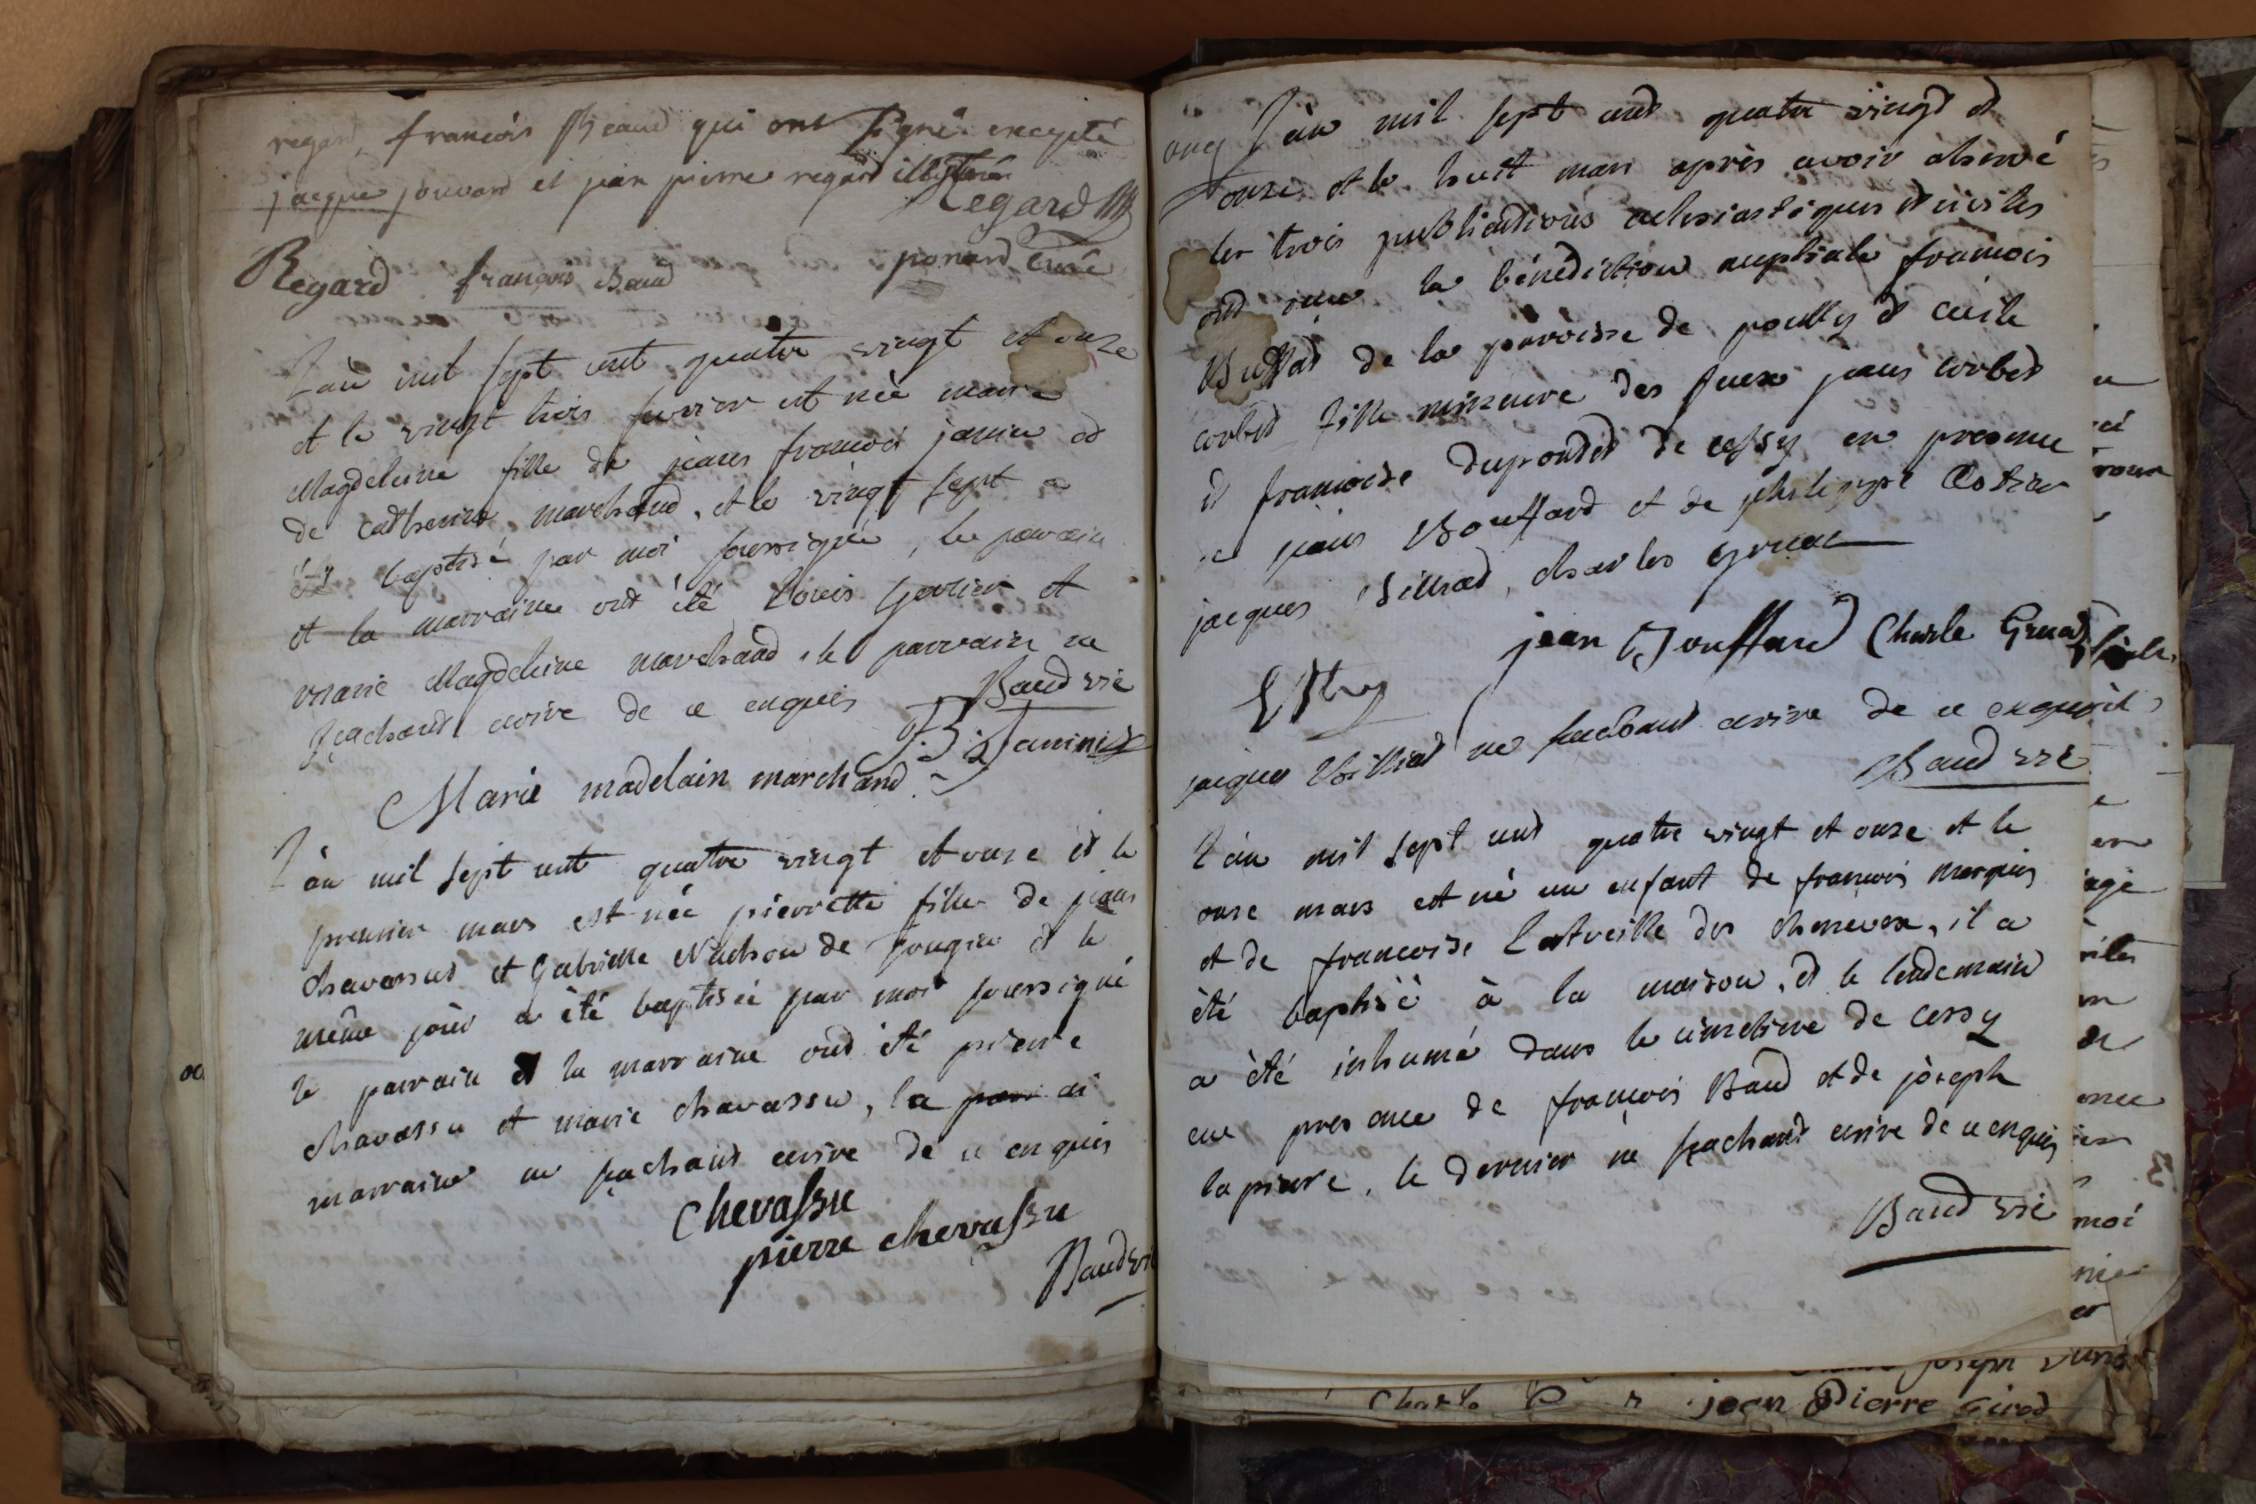 regard, françois Beaud qui ont signé excepté
jacque jouvard et jean pierre regard illiterés
Regard
Regard françois Baud ponard Curé
L'an mil sept cent quatre vingt et onze
et le vingt trois fevrier est née marie
Magdeleine fille de jean françois janin et
de catherine marchand, et le vingt sept a
été baptisé par moi soussigné, le parrain
et la marraine ont été Louis et
marie Magdeleine marchand, le parrain ne
sçachant ecrire de ce enquis Baud vic
Marie madelain marchand. janin
L'an mil sept cent quatre vingt et onze et le
premier mars est née pierrette fille de jean
chavassus et Gabrielle Nachon de Tougin et le
même jour a été baptisée par moi soussigné
le parrain et la marraine ont été pierre
chavassu et marie chavassu, la
marraine ne sçachant ecrire de ce enquis
Chevassu
pierre chevassu
Baud vic
L'an mil sept cent quatre vingt et
onze et le huit mars après avoir observé
les trois publications eclesiastiques et civiles
ont reçu la bénédiction nuptiale françois
de la paroisse de pouilly et cécile
corbet fille mineure des feux jean corbet
et françoise Dupondet de cessy en presence
de jean Bouffard et de philippe
jacques Billiad, charles gruae
jean Bouffard Charle Gruad
jacques Billiad ne sachant ecrire de ce enquit
Baud vic
L'an mil sept cent quatre vingt et onze et le
onze mars est né un enfant de françois marquis
et de françoise Latreille des cheneven, il a
été baptisé à la maison, et le lendemain
a été inhumé dans le cimetiere de cessy
en presence de françois Baud et de joseph
lapierre, le dernier ne sçachant ecrire de ce enquis
Baud vic
jean Pierre Girod